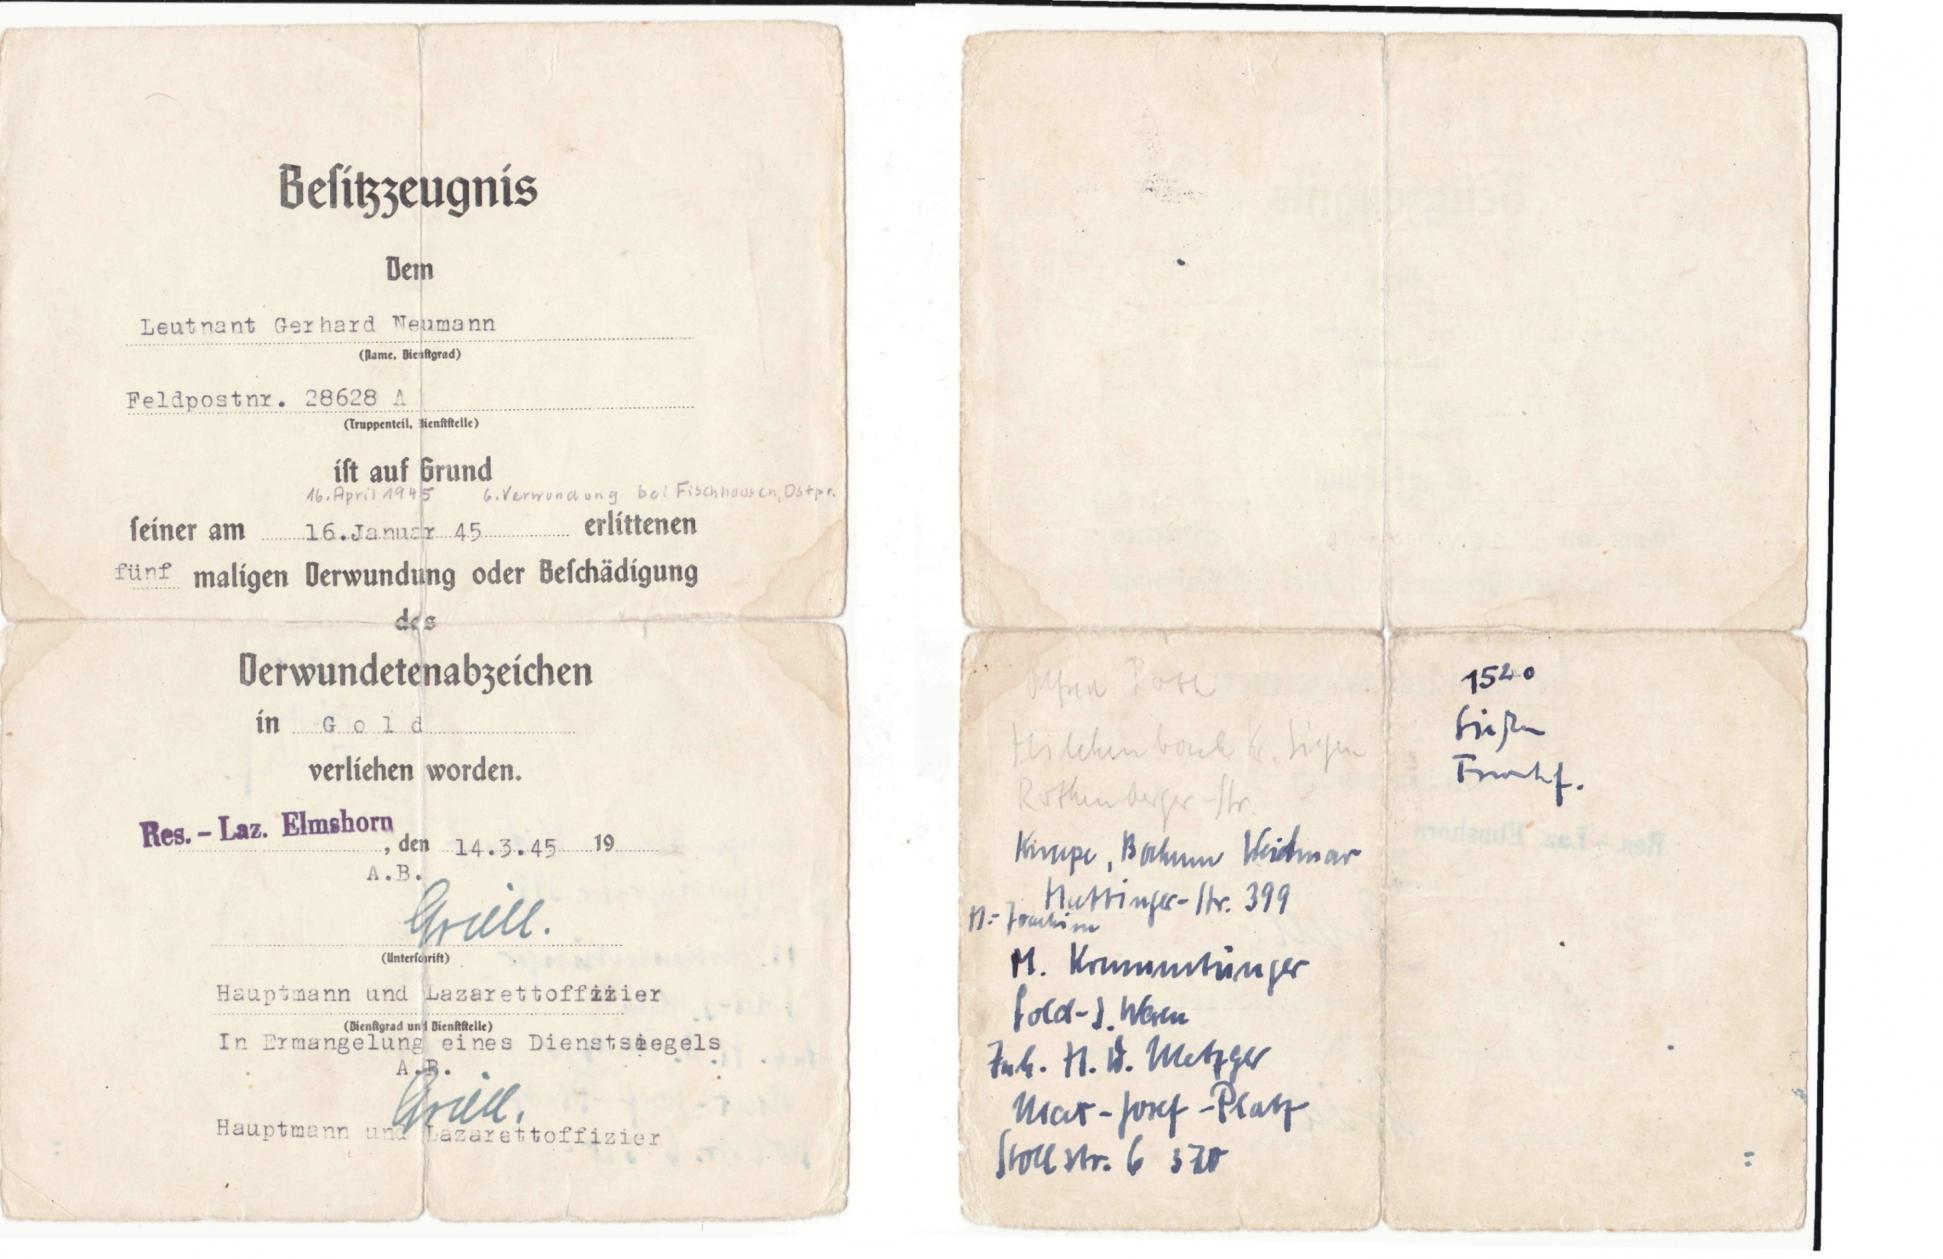 Besitzzeugnis
Dem
Leutnant Gerhard Neumann
(Name, Dienstgrad)
Feldpostnr. 28628 A
(Truppenteil, Dienststelle)
ist auf Grund
16. April 1945 6. Verwundung bei Fischhausen, Ostpr.
seiner am 16.Januar 45 erlittenen
fünf maligen Verwundung oder Beschädigung
des
Verwundetenabzeichen
in Gold
verliehen worden.
Res.-Laz. Elmshorn, den 14.3.45 19
A.B.
Grill.
(Unterschrift)
Hauptmann und Lazarettoffizier
(Dienstgrad und Dienststelle)
In Ermangelung eines Dienstsiegels
A.B.
Grill.
Hauptmann und Lazarettoffizier
Alfred Roth
Hilchenbach Kr. Siegen
Rothenberger-Str.
Bochum Weitmar
Hattinger-Str. 399
H.-Joachim
M. Krummtünger
Inh. H. W. Metzger
Max-Josef-Platz
Stollstr. 6
1520